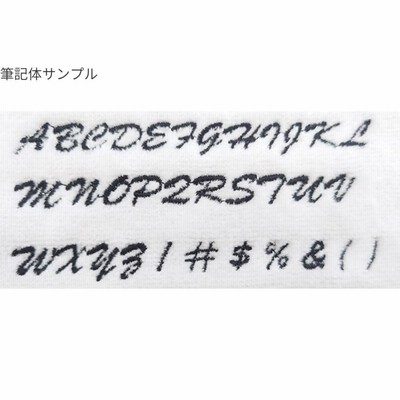 筆記体サンプル
ABCDEFGHIJKL
MNOPQRSTUV
WXYZ!#$%&()